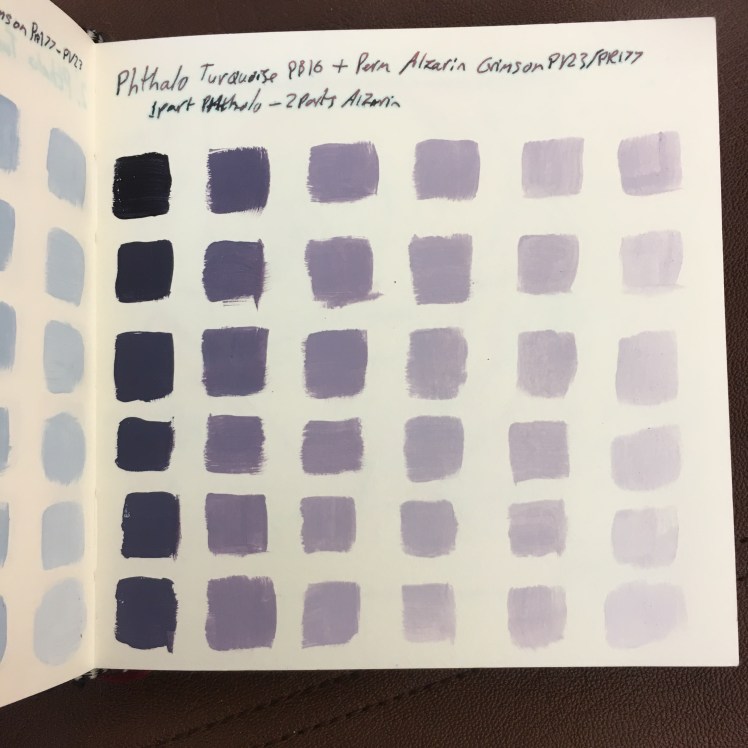 mson PR177-PV23
Phthalo Turquoise PB16 + Perm Alzarin Crimson PV23/PR177
1part Phthalo - 2Parts Alzarin